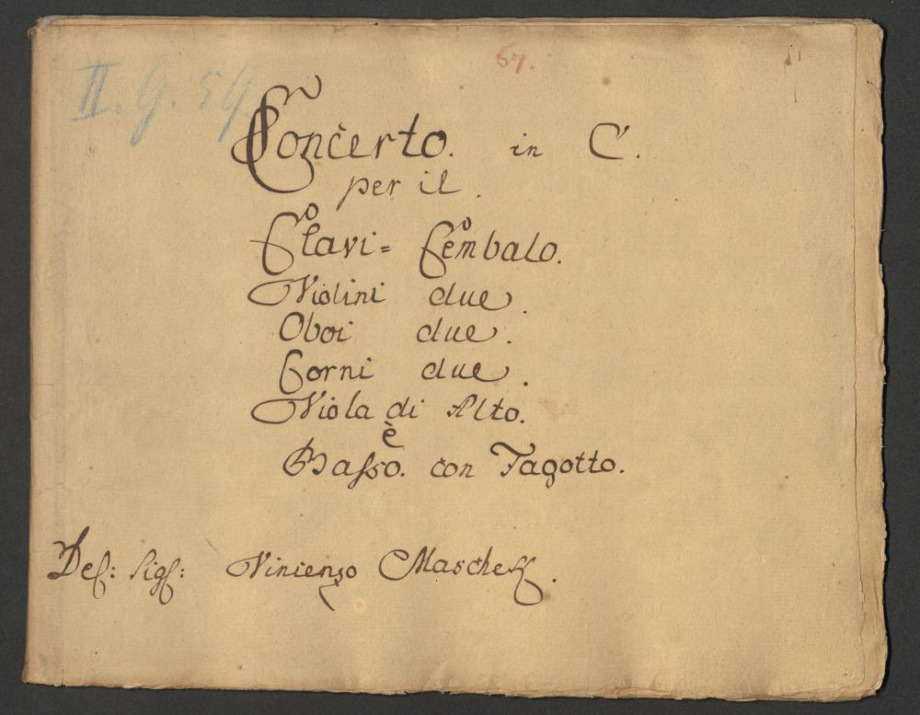 67.
II. G. 59
Concerto. in C.
per il.
Clavi= Cembalo.
Violini due.
Oboi due.
Corni due.
Viola di Alto.
è
Basso. con Fagotto.
Del: Sig: Vincenzo Maschek.